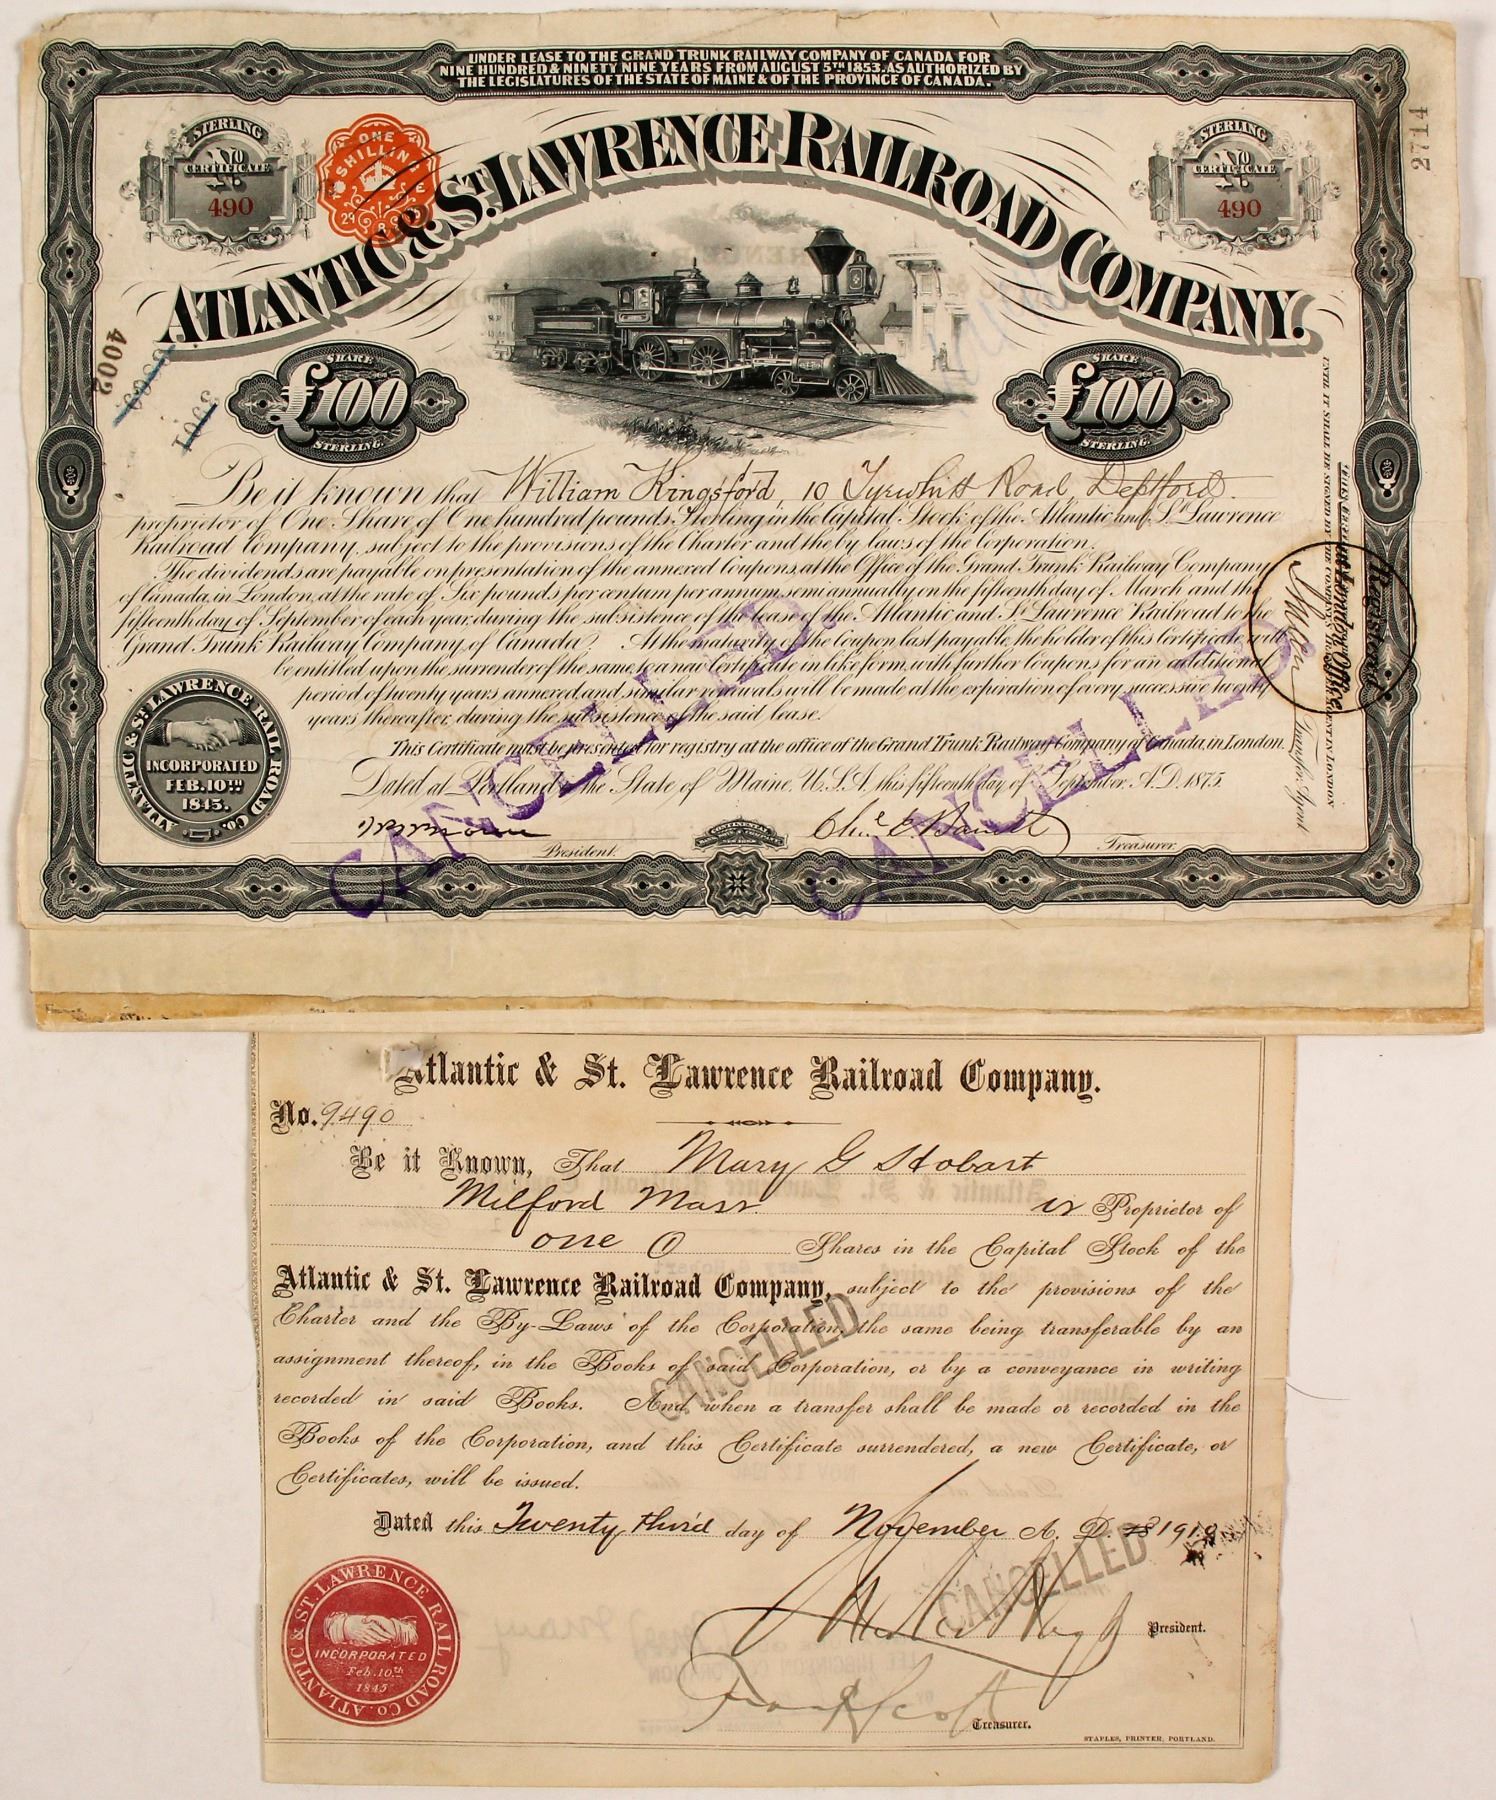 UNDER LEASE TO THE GRAND TRUNK RAILWAY COMPANY OF CANADA FOR
NINE HUNDRED & NINETY NINE YEARS FROM AUGUST 5TH 1853. AS AUTHORIZED BY
THE LEGISLATURES OF THE STATE OF MAINE & OF THE PROVINCE OF CANADA.
STERLING
No
CERTIFICATE
490
ONE SHILLING
29
STERLING
No
CERTIFICATE
490
2714
ATLANTIC & ST. LAWRENCE RAILROAD COMPANY.
4002
3001
SHARE
£100
STERLING.
SHARE
£100
STERLING.
Be it known that William Kingsford, 10 Tyrwhitt Road, Deptford.
proprietor of One Share of One hundred pounds Sterling in the Capital Stock of the Atlantic and St. Lawrence
Railroad Company, subject to the provisions of the Charter and the by laws of the Corporation.
The dividends are payable on presentation of the annexed Coupons, at the Office of the Grand Trunk Railway Company
of Canada, in London, at the rate of Six pounds per centum per annum, semi annually, on the fifteenth day of March and the
fifteenth day of September of each year, during the subsistence of the lease of the Atlantic and St. Lawrence Railroad to the
Grand Trunk Railway Company of Canada. At the maturity of the Coupon last payable, the holder of this Certificate, will
be entitled upon the surrender of the same, to a new Certificate in like form, with further Coupons for an additional
period of twenty years annexed, and similar renewals will be made at the expiration of every successive twenty
years thereafter, during the subsistence of the said lease.
This Certificate must be presented for registry at the office of the Grand Trunk Railway Company of Canada, in London.
Dated at Portland in the State of Maine, U.S.A. this fifteenth day of September A.D. 1875.
President.
Chas. E. Barrett
Treasurer.
ATLANTIC & ST. LAWRENCE RAIL ROAD CO.
INCORPORATED
FEB. 10TH
1845.
CANCELLED
CANCELLED
UNTIL IT SHALL BE SIGNED BY THE COMPANY'S TRANSFER AGENT IN LONDON
Registered
at London Office
Transfer Agent
CONTINENTAL
Atlantic & St. Lawrence Railroad Company.
No. 9490
Be it Known, That Mary G Stobart
Milford Mass is Proprietor of
one (1) Shares in the Capital Stock of the
Atlantic & St. Lawrence Railroad Company, subject to the provisions of the
Charter and the By-Laws of the Corporation, the same being transferable by an
assignment thereof, in the Books of said Corporation, or by a conveyance in writing
recorded in said Books. And when a transfer shall be made or recorded in the
Books of the Corporation, and this Certificate surrendered, a new Certificate, or
Certificates, will be issued.
CANCELLED
Dated this Twenty third day of November A. D. 1910
CANCELLED
President.
Frank Scott
Treasurer.
ATLANTIC & ST. LAWRENCE RAIL ROAD CO.
INCORPORATED
Feb. 10th
1845
STAPLES, PRINTER, PORTLAND.